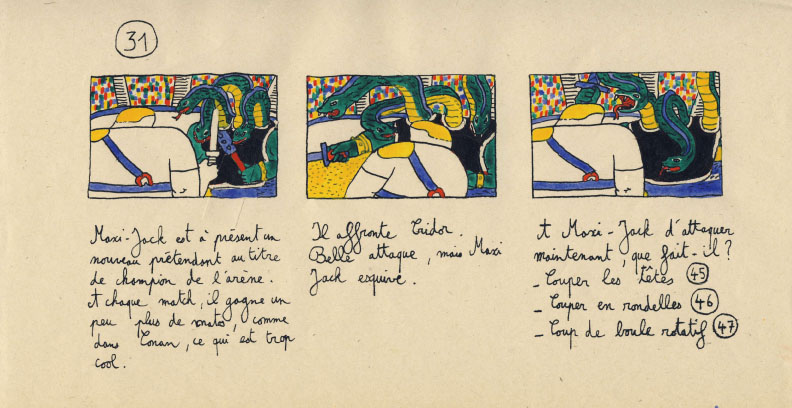 31
Maxi-Jack est à présent un
nouveau prétendant au titre
de champion de l'arène.
A chaque match, il gagne un
peu plus de matos, comme
dans Conan, ce qui est trop
cool.
Il affronte Cridor.
Belle attaque, mais Maxi
Jack esquive.
A Maxi-Jack d'attaquer
maintenant, que fait-il?
- Couper les têtes 45
- Couper en rondelles 46
- Coup de boule rotatif 47